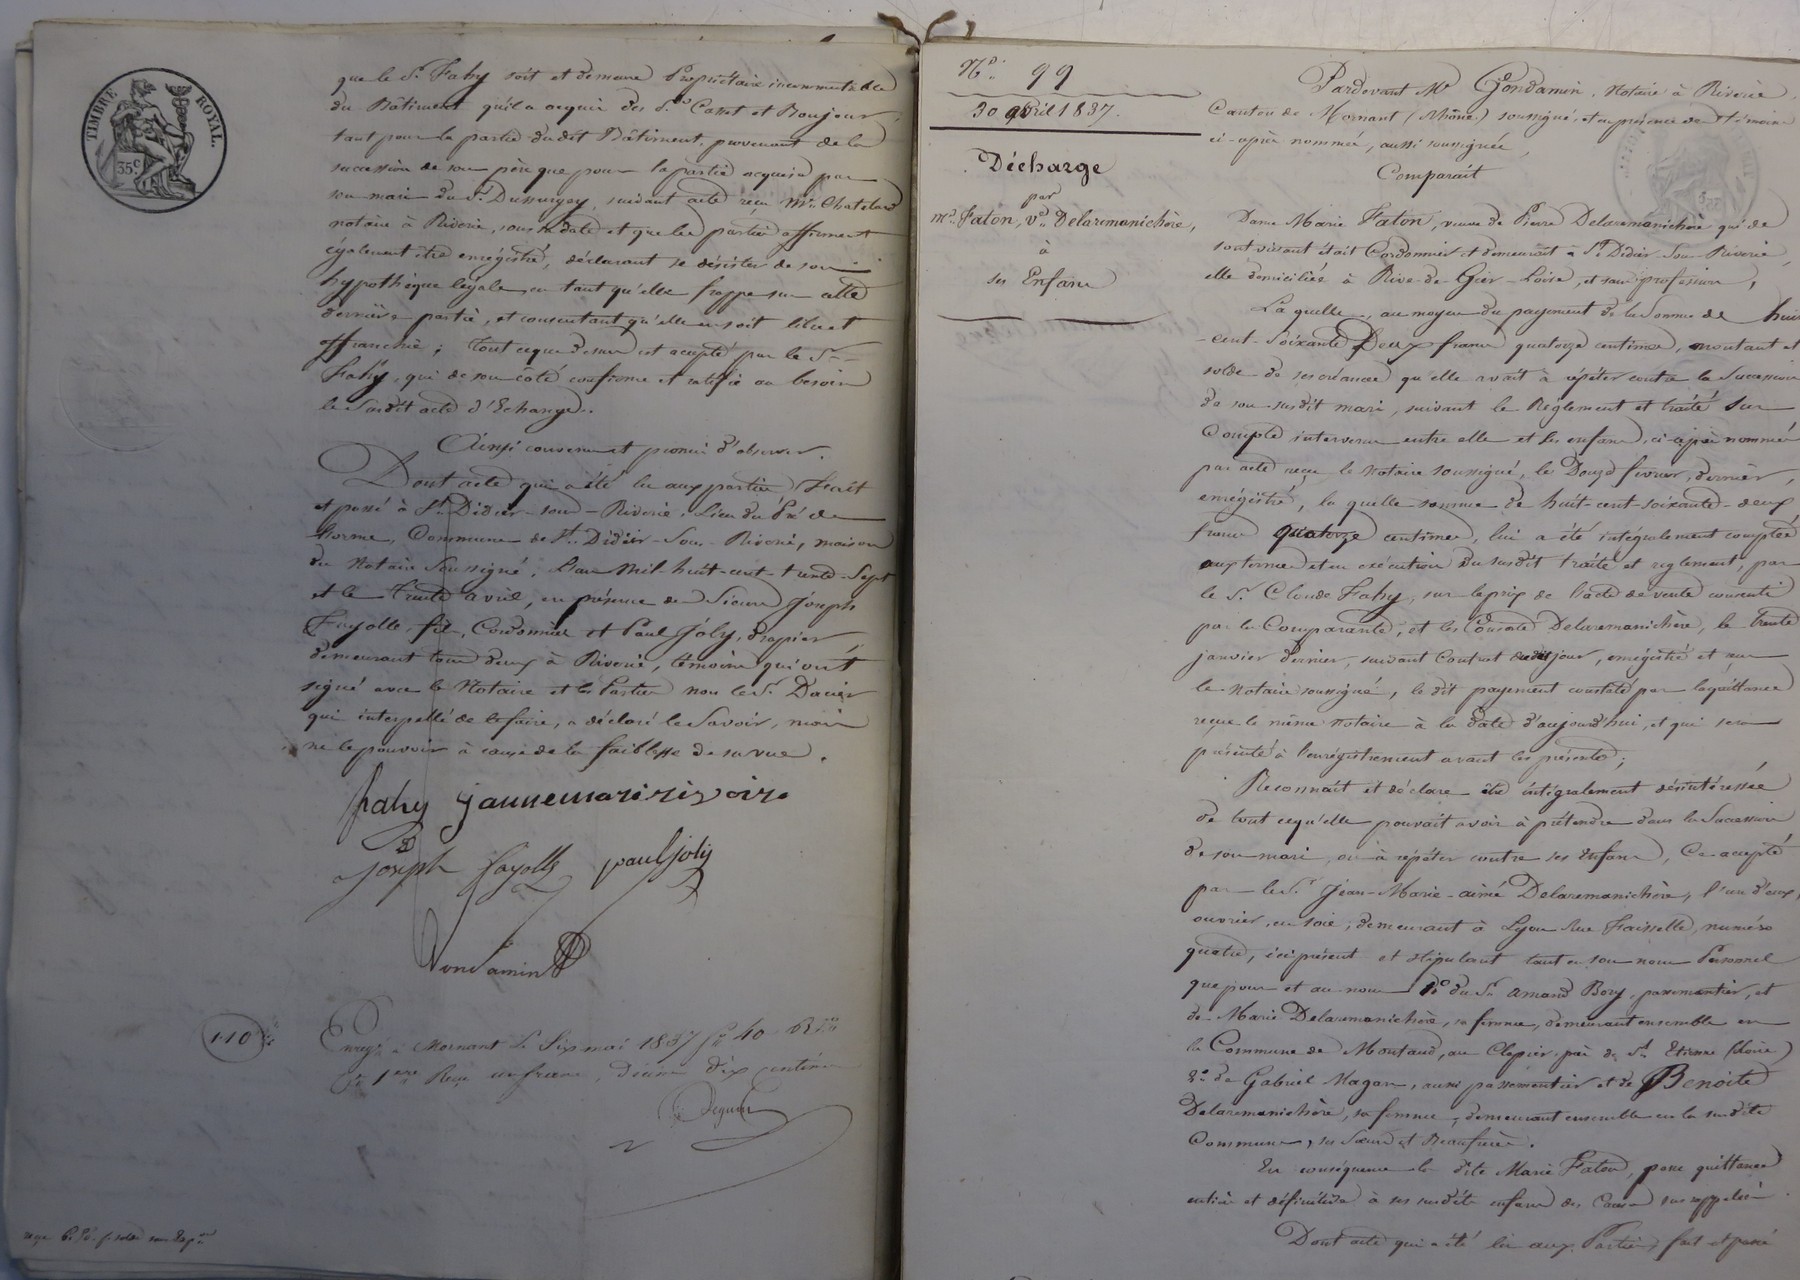 TIMBRE ROYAL
35 c
que le Sr. Fahy soit et demeure Propriétaire incommutable
du Bâtiment qu'il a acquis des Srs. Cazot et Boujour,
tant pour la partie dudit Bâtiment, provenant de la
succession de son père que pour la partie acquise par
son mari du Sr. Dussurgey, suivant acte reçu Me. Chatelard
notaire à Riverie, sous sa date et que les parties affirment
également être enrégistré, déclarant se désister de son
hypothèque légale, en tant qu'elle frappe sur cette
dernière partie, et consentant qu'elle en soit libre et
affranchie; tout ceque dessus est accepté par le Sr.
Fahy, qui de son côté confirme et ratifie au besoin
le susdit acte d'Echange.
Ainsi convenu et promis d'observer.
Dont acte qui a été lu aux parties, Fait
et passé à St. Didier-sous-Riverie, lieu du Pré de
lorme, Commune de St. Didier-Sous-Riverie, maison
du Notaire Soussigné, L'an Mil-huit-cent-trente-Sept
et le Trente avril, en présence de Sieurs Joseph
Fayolle fils, Cordonnier et Paul Joly, drapier,
demeurant tous deux à Riverie, témoins qui ont
signé avec le Notaire et les Parties non le Sr. Dacier
qui interpellé de le faire, a déclaré le Savoir, mais
ne le pouvoir à cause de la faiblesse de sa vue.
fahy jannemari rivoire
joseph fayolle paul joly
Gondamin
110
Enregé. à Mornant Le Six mai 1837 fo. 40 Ro.
Ce 1ere Reçu un franc, Décime dix centimes
N°. 99
30 avril 1837.
Décharge
par
md. Faton, ve. Delaremanichère,
à
ses Enfans
Pardevant Me Gondamin, Notaire à Riverie,
Canton de Mornant (Rhône) soussigné, et en présence des témoins
ci-après nommés, aussi soussignés,
Comparait
Dame Marie Faton, veuve de Pierre Delaremanichère qui de
son vivant était Cordonnier et demeurant à St. Didier-Sous-Riverie,
elle domiciliée à Rive-de-Gier-Loire, et sans profession,
Laquelle, au moyen du payement de la Somme de huit
-cent-soixante Deux francs quatorze centimes, montant et
solde de ses créances qu'elle avait à répéter contre la Succession
de son susdit mari, suivant le Règlement et traité sur
Compte intervenu entre elle et les enfans, ci-après nommés
par acte reçu le Notaire soussigné, le Douze février, dernier,
enrégistré, la quelle somme de huit-cent-soixante-deux
francs quatorze centimes, lui a été intégralement comptée
aux termes et en exécution du susdit traité et règlement, par
le Sr. Claude Fahy, sur le prix de l'acte de vente consenti
par la Comparante, et les Consorts Delaremanichère, le trente
janvier dernier, suivant Contrat dudit jour, enrégistré et reçu
le Notaire soussigné, le dit payement constaté par la quittance
reçue le même Notaire à la date d'aujourd'hui, et qui sera
présentée à l'enrégistrement avant les présentes;
Reconnait et déclare être intégralement désintéressée
de tout cequ'elle pouvait avoir à prétendre dans la Succession
de son mari, ou à répéter contre ses Enfans, Ce accepté
par le Sr. Jean-Marie-aimé Delaremanichère, l'un d'eux,
ouvrier en soie, demeurant à Lyon Rue Faisselle, numéro
quatre, ici présent et stipulant tant en son nom Personnel
que pour et au nom 1° du Sr. Amand Bory, passementier, et
de Marie Delaremanichère, sa femme, demeurant ensemble en
la Commune de Montaud, au Clapier près de St. Etienne (Loire)
2° de Gabriel Magan, aussi passementier et de Benoite
Delaremanichère, sa femme, demeurant ensemble en la susdite
Commune, ses Sœurs et Beaufrères.
En conséquence la dite Marie Faton, passe quittance
entière et définitive à ses susdits enfans des Causes sus rappelées.
Dont acte qui a été lu aux Parties, fait et passé